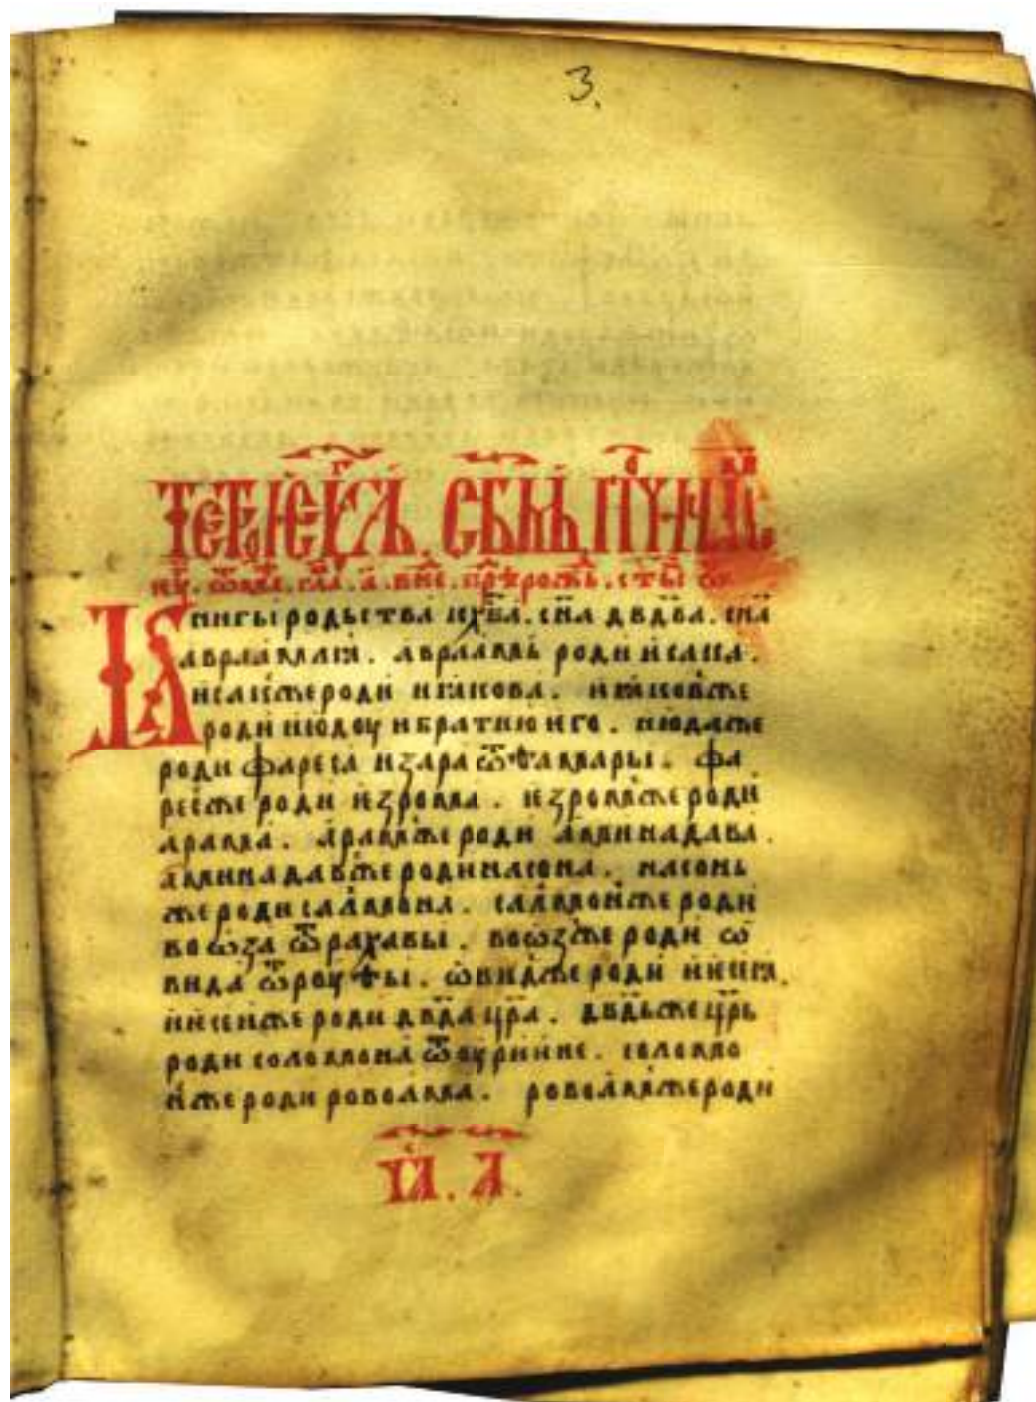 3.
книгы родьства іс҃ х҃ва. сн҃а дв҃два. сн҃а
авраамлꙗ. авраамь роди исаака.
исаакже роди иꙗкова. иꙗковже
роди июдоу и братию иего. июдаже
роди фареса и зара ѿ ѳамары. фа
ресже роди изрома. изромже роди
арама. арамже роди аминадава.
аминадавже роди насона. насонь
же роди салмона. салмонже роди
вооза ѿ рахавы. воозже роди ѡ
вида ѿ роуѳы. ѡвидже роди иесеꙗ.
иесеиже роди дв҃да цр҃а. дв҃дьже цр҃ь
роди соломона ѿ оуриине. соломо
нже роди ровоама. ровоамже роди